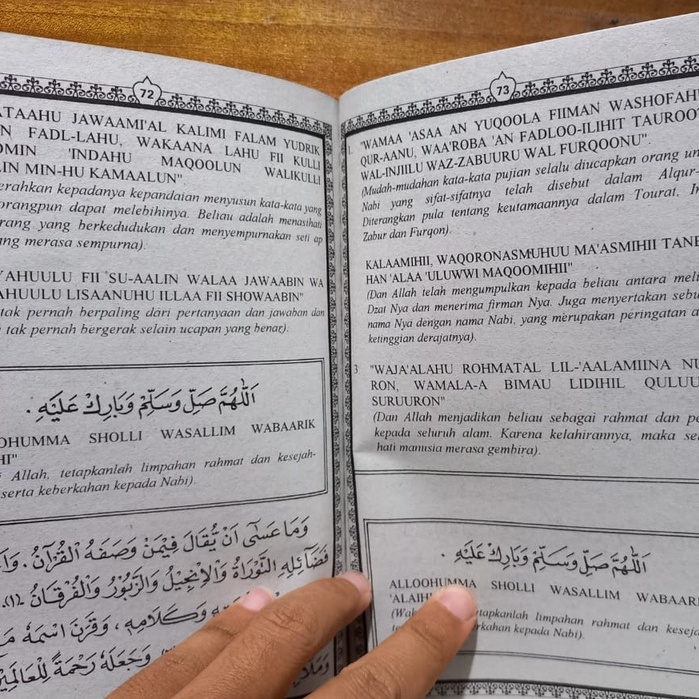 72
ATAAHU JAWAAMI'AL KALIMI FALAM YUDRIK
N FADL-LAHU, WAKAANA LAHU FII KULLI
OMIN 'INDAHU MAQOOLUN WALIKULLI
LIN MIN-HU KAMAALUN"
erahkan kepadanya kepandaian menyusun kata-kata yang
orangpun dapat melebihinya. Beliau adalah menasihati
rang yang berkedudukan dan menyempurnakan seti ap
ng merasa sempurna).
YAHUULU FII 'SU-AALIN WALAA JAWAABIN WA
AHUULU LISAANUHU ILLAA FII SHOWAABIN"
tak pernah berpaling dari pertanyaan dan jawaban dan
tak pernah bergerak selain ucapan yang benar).
اَللّٰهُمَّ صَلِّ وَسَلِّمْ وَبَارِكْ عَلَيْهِ .
OHUMMA SHOLLI WASALLIM WABAARIK
HI"
Allah, tetapkanlah limpahan rahmat dan kesejah-
serta keberkahan kepada Nabi).
وَمَا عَسٰى اَنْ يُقَالَ فِيْمَنْ وَصَفَهُ الْقُرْآنُ .
فَضَآئِلِهِ التَّوْرَاةُ وَالْاِنْجِيْلُ وَالزَّبُوْرُ وَالْفُرْقَانُ .
وَكَلَامِهِ ، وَقَرَنَ اسْمَهُ
وَجَعَلَهُ رَحْمَةً لِلْعَالَمِيْنَ
73
"WAMAA 'ASAA AN YUQOOLA FIIMAN WASHOFAHU
QUR-AANU, WAA'ROBA 'AN FADLOO-ILIHIT TAUROO
WAL-INJIILU WAZ-ZABUURU WAL FURQOONU".
(Mudah-mudahan kata-kata pujian selalu diucapkan orang un
Nabi yang sifat-sifatnya telah disebut dalam Alqur-
Diterangkan pula tentang keutamaannya dalam Tourat, In
Zabur dan Furqon).
KALAAMIHII, WAQORONASMUHUU MA'ASMIHII TANB
HAN 'ALAA 'ULUWWI MAQOOMIHII"
(Dan Allah telah mengumpulkan kepada beliau antara meli
Dzat Nya dan menerima firman Nya. Juga menyertakan sebu
nama Nya dengan nama Nabi, yang merupakan peringatan a
ketinggian derajatnya).
3 "WAJA'ALAHU ROHMATAL LIL-'AALAMIINA NU
RON, WAMALA-A BIMAU LIDIHIL QULUU
SURUURON"
(Dan Allah menjadikan beliau sebagai rahmat dan pe
kepada seluruh alam. Karena kelahirannya, maka se
hati manusia merasa gembira).
اَللّٰهُمَّ صَلِّ وَسَلِّمْ وَبَارِكْ عَلَيْهِ .
ALLOOHUMMA SHOLLI WASALLIM WABAARI
'ALAIH
tetapkanlah limpahan rahmat dan keseja
berkahan kepada Nabi).